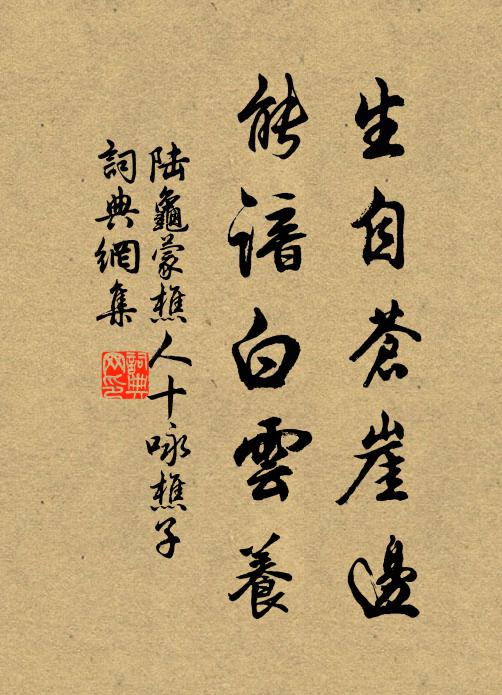 生自蒼崖邊
能諳白雲養
陸龜蒙樵人十咏樵子
詞典網集
詞典网印